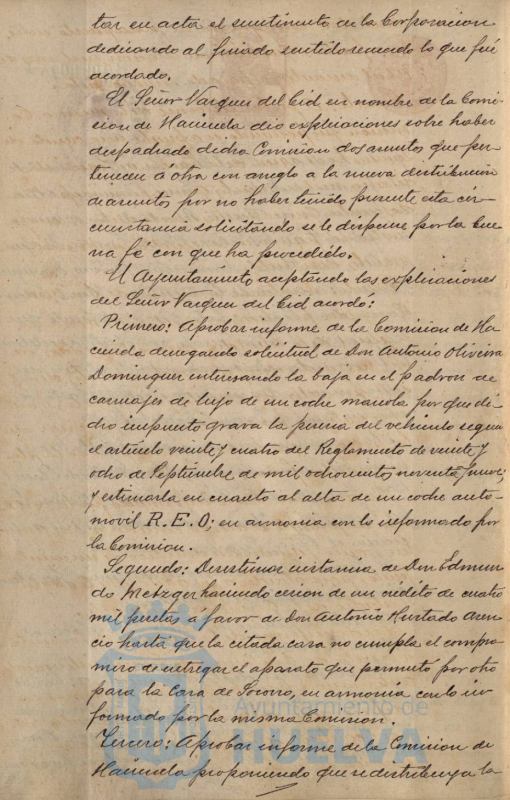 tar en acta el sentimiento de la Corporacion
dedicando al finado sentido recuerdo lo que fué
acordado.
El Señor Vazquez del Cid en nombre de la Comi-
sion de Hacienda dió explicaciones sobre haber
despachado dicha Comision dos asuntos que per-
tenecen á otra con arreglo a la nueva distribucion
de asuntos por no haber tenido presente esta cir-
cunstancia solicitando se le dispense por la bue-
na fé con que ha procedido.
El Ayuntamiento aceptando las explicaciones
del Señor Vazquez del Cid acordó:
Primero: Aprobar informe de la Comision de Ha-
cienda denegando solicitud de Don Antonio Oliveira
Dominguez interesando la baja en el padron de
carruajes de lujo de un coche manola por que di-
cho impuesto grava la posesion del vehiculo segun
el articulo veinte y cuatro del Reglamento de veinte y
ocho de Septiembre de mil ochocientos noventa y nueve;
y estimarla en cuanto al alta de un coche auto-
movil R.E.O; en armonia con lo informado por
la Comision.
Segundo: Desestimar instancia de Don Edmun-
do Metzger haciendo cesion de un crédito de cuatro
mil pesetas á favor de Don Antonio Hurtado Asen-
cio hasta que la citada casa no cumpla el compro-
miso de entregar el aparato que permutó por otro
para la Casa de Socorro, en armonia con lo in-
formado por la misma Comision.
Tercero: Aprobar informe de la Comision de
Hacienda proponiendo que se distribuya la
Ayuntamiento de
HUELVA